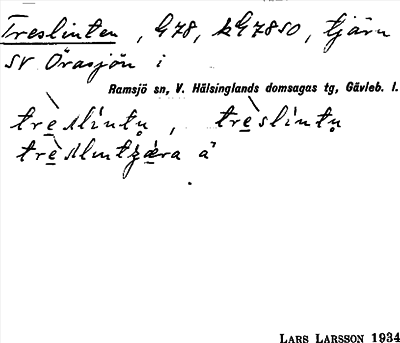 Treslinten, G78, kG7850, tjärn
SV Örasjön i
Ramsjö sn, V. Hälsinglands domsagas tg, Gävleb. l.
tre̱slintn̥, tre̱slintn̥
å
LARS LARSSON 1934